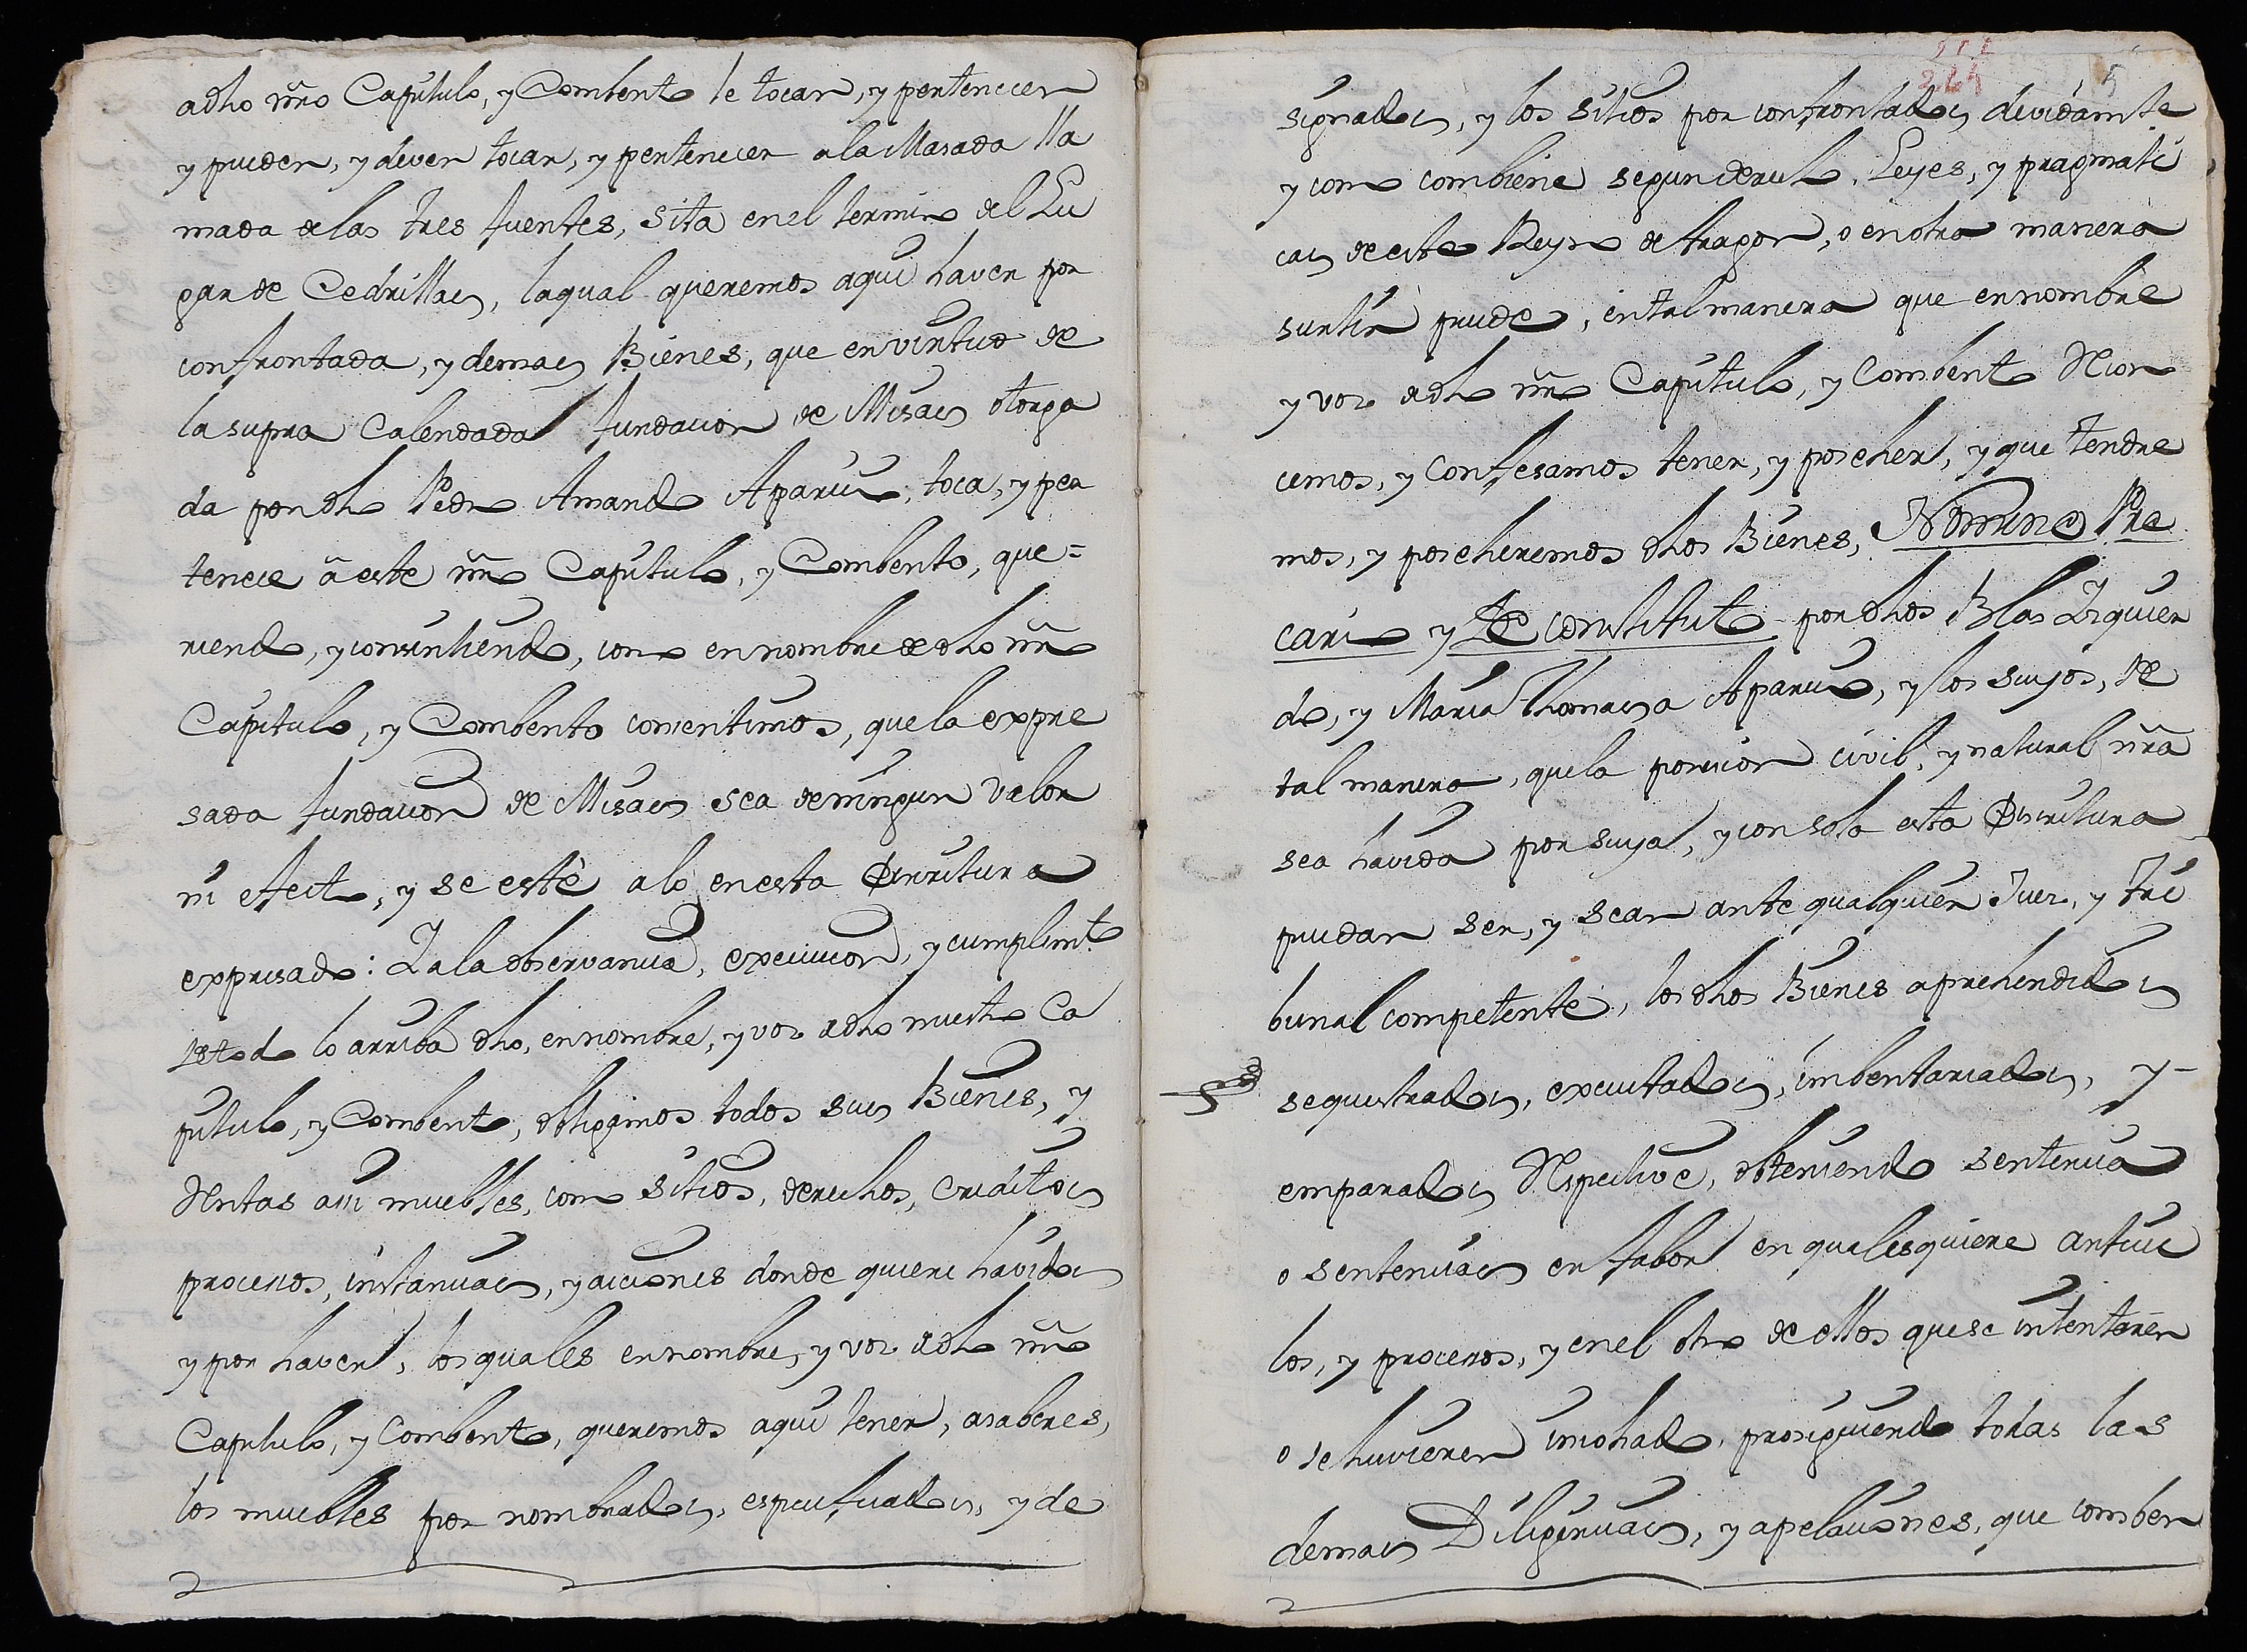 adho nr̃o Capitulo, y Combento le tocan, y pertenecen
y pueden, y deven tocar, y pertenecer a la Masada lla
mada de las tres fuentes, sita en el termino del Lu
gar de Cedrillas, la qual queremos aqui haver por
confrontada, y demas Bienes, que en virtud de
la supra Calendada fundacion de Misas otorga
da por dho Pedro Amando Aparicio, toca, y per
tenece â este nr̃o Capitulo, y Combento, que=
riendo, y consintiendo, como en nombre de dho nr̃o
Capitulo, y Combento consentimos, que la expre
sada fundacion de Misas sea de ningun valor
ni efecto, y se estè a lo en esta Escritura
expresado: Y a la observancia, execucion, y cumplimto
de todo lo arriba dho, en nombre, y voz de dho nuestro Ca
pitulo, y Combento, obligamos todos sus Bienes, y
Rentas assi muebles, como sitios, derechos, creditos
processos, instancias, y acciones donde quiere havidos
y por haver, los quales en nombre, y voz de dho nr̃o
Capitulo, y Combento, queremos aqui tener, a saber es,
los muebles por nombrados, especificados, y de
5
signados, y los sitios por confrontados devidamte
y como combiene segun derecho, Leyes, y pragmati
cas de este Reyno de Aragon, o en otra manera
surtir puede, en tal manera que en nombre
y voz de dho nr̃o Capitulo, y Combento Recono
cemos, y Confesamos tener, y poseher, y que tendre
mos, y poseheremos dhos Bienes, Nomine Pre
cario y De constituto por dhos Blas Izquier
do, y Maria Thomasa Aparicio, y los suyos, de
tal manera, que la posesion civil, y natural nr̃a
sea havida por suya, y con sola esta Escritura
puedan ser, y sean ante qualquier Juez, y Tri
bunal competente, los dhos Bienes aprehendidos
sequestrados, executados, imbentariados, y-
emparados Respective, obteniendo sentencia
o sentencias en fabor en qualesquiere articu
los, y procesos, y en el otro de ellos que se intentaren
o se huvieren incohado, prosiguiendo todas las
demas Diligencias, y apelaciones, que comben